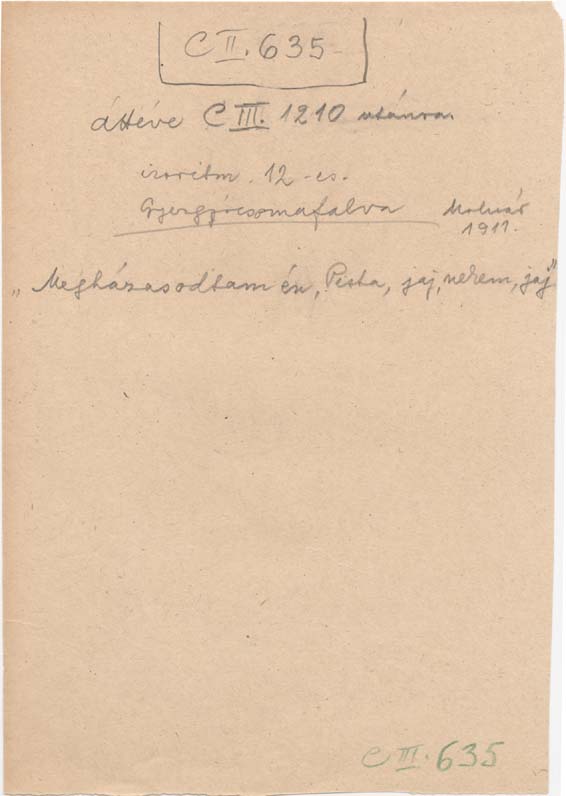 C II. 635
áttéve C III. 1210 utánra.
izoritm. 12-es.
Gyergyócsomafalva Molnár
1911.
„Megházasodtam én, Pista, jaj, nekem, jaj"
C III. 635